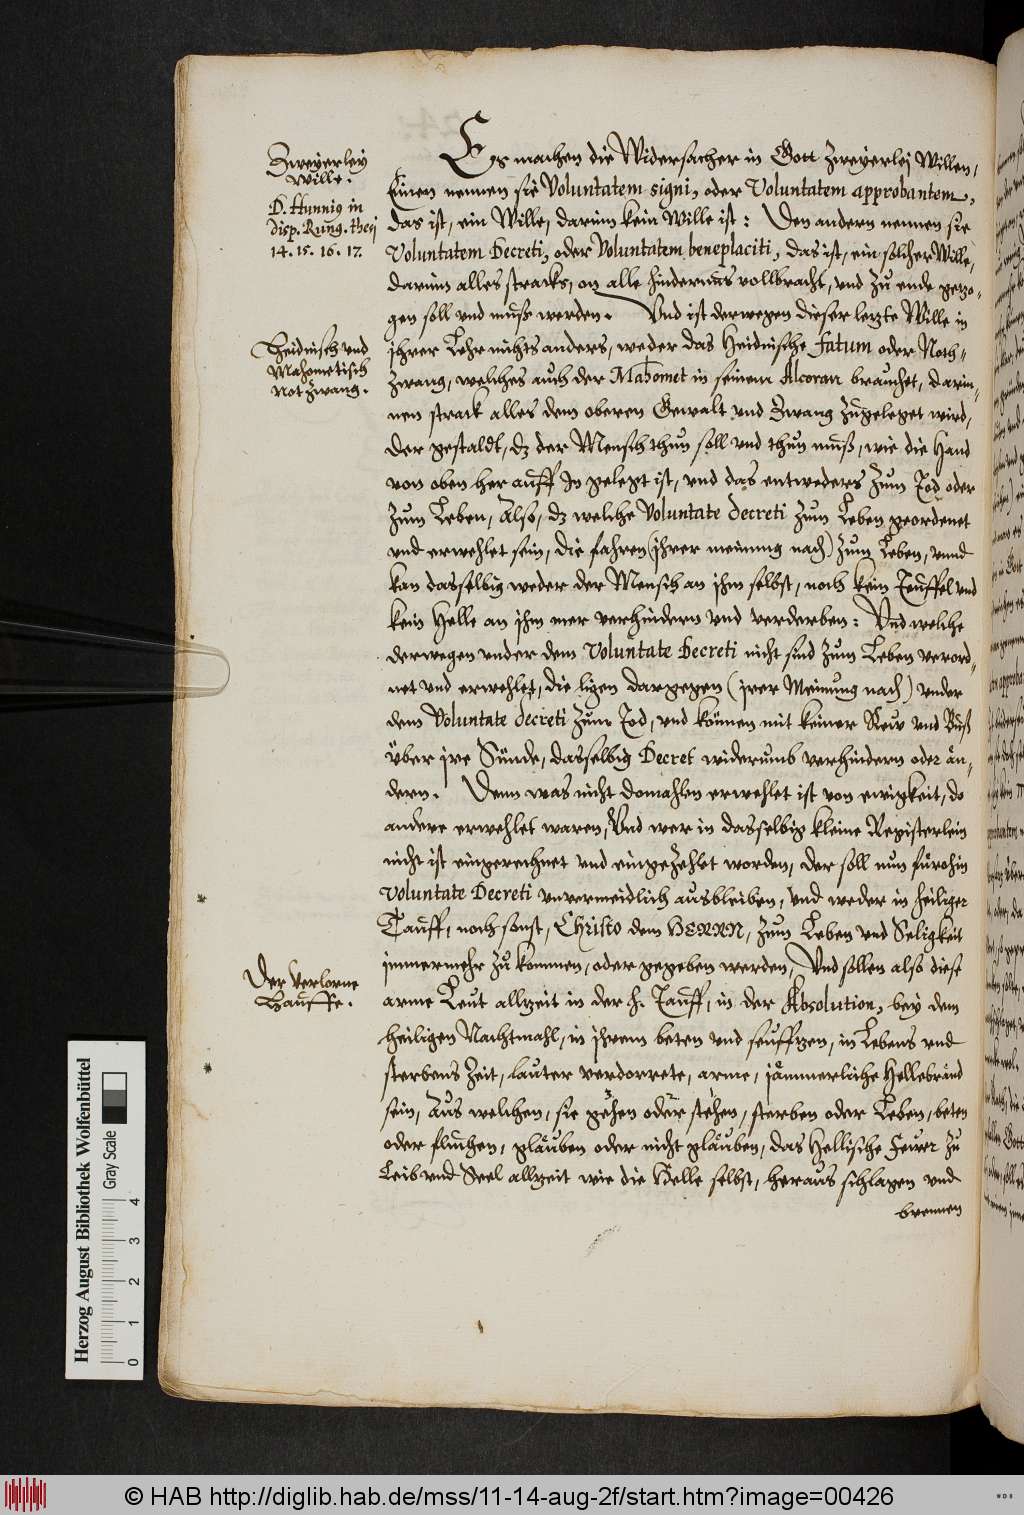 Zweyerley
Wille.
D. Hunnius in
disp. Rung. thesi
14. 15. 16. 17.
Es machen die Widersacher in Gott zweyerlej Willen,
Einen nennen sie Voluntatem signi, oder Voluntatem approbantem,
das ist, ein Wille, darinn kein Wille ist: Den andern nennen sie
Voluntatem Decreti, oder Voluntatem beneplaciti, das ist, ein solcher Wille,
darinn alles stracks, on alle hindernüs vollbracht, vnd zu ende gezo-
gen soll vnd muß werden. Vnd ist derwegen dieser letzte Wille in
Heidnisch vnd
Mahometisch
Notzwang.
jhrer Lehr nichts anders, weder das Heidnische fatum oder Noth-
zwang, welches auch der Mahomet in seinem Alcoran brauchet, darin-
nen strack alles dem oberen Gewalt vnd Zwang zugeleget wird,
Der gestaldt, dz der Mensch thun soll vnd thun muß, wie die Hand
von oben her auff In gelegt ist, vnd das entweders zum Tod oder
zum Leben, Also, dz welche Voluntate decreti zum Leben geordenet
vnd erwehlet sein, die fahren (jhrer meinung nach) zum Leben, vnnd
kan dasselbig weder der Mensch an jhm selbst, noch kein Teuffel vnd
kein Helle an jhm mer verhindern vnd verderben: Vnd welche
derwegen vnder dem Voluntate Decreti nicht sind zum Leben verord-
net vnd erwehlet, die ligen dargegen (jrer Meinung nach) vnder
dem Voluntate decreti zum Tod, vnd können mit keiner Rew vnd Buß
über jre Sünde, dasselbig Decret widerumb verhindern oder än-
dern. Denn was nicht domahlen erwehlet ist von ewigkeit, do
andere erwehlet waren, Vnd wer in dasselbig kleine Registerlein
nicht ist eingerechnet vnd eingezehlet worden, der soll nun fürohin
Voluntate Decreti vnvermeidlich ausbleiben, vnd weder in heiliger
Tauff, noch sonst, Christo dem HERRN, zum Leben vnd Seligkeit
jmmermehr zu kommen, oder gegeben werden, Vnd sollen also diese
Der verlorne
Hauffe.
arme Leut allzeit in der H. Tauff, in der Absolution, bey dem
heiligen Nachtmahl, in jhrem beten vnd seuffzen, in Lebens vnd
sterbens Zeit, lauter verdorrete, arme, jämmerliche Hellebränd
sein, Aus welchen, sie gehen oder stehen, sterben oder Leben, beten
oder fluchen, gläuben oder nicht gläuben, das Hellische Fewer zu
Leib vnd Seel allzeit wie die Helle selbst, heraus schlagen vnd
brennen
Herzog August Bibliothek Wolfenbüttel
Gray Scale
0 1 2 3 4
© HAB http://diglib.hab.de/mss/11-14-aug-2f/start.htm?image=00426